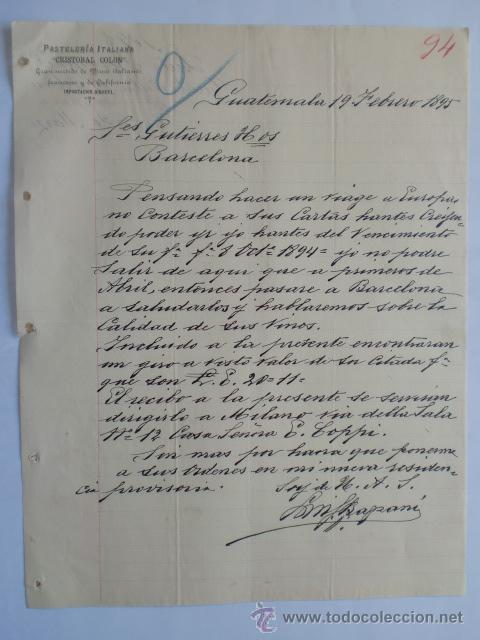 PASTELERÍA ITALIANA
"CRISTOBAL COLON"
Gran surtido de Vinos italianos
franceses y de California
IMPORTACION DIRECTA
94
Guatemala 19 Febrero 1895
Sres Gutierres Hos
Barcelona
Pensando hacer un viage a Europa
no Conteste a sus Cartas hantes Creyen-
do poder yr yo hantes del Vencimiento
de Su fra fa 8 Octe 1894 = yo no podre
Salir de aqui que a primeros de
Abril, entonces pasare a Barcelona
a saludarlos y hablaremos sobre la
Calidad de sus Vinos.
Incluido a la presente encontraran
un giro a visto valor de Su Citada fra
que son L. E. 20=11=
El recibo a la presente se serviran
dirigirlo a Milano via della Sala
No 12 Casa Señora E. Coppi.
Son mas por haora que ponerme
a Sus Ordenes en mi nueva residen-
cia provisoria.
Soy de U. A. S.
todocoleccion.net
www.todocoleccion.net